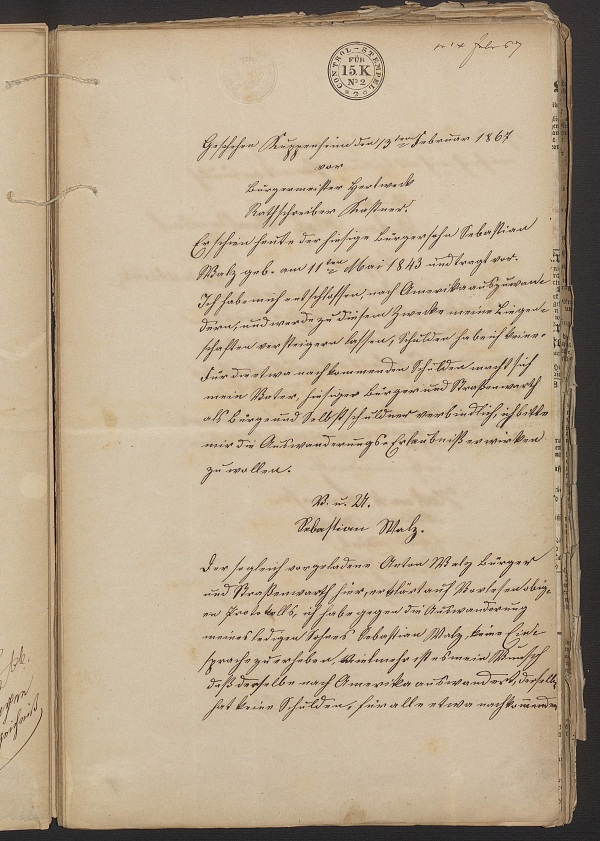 CONTROL-STEMPEL
FÜR
15 K
No 2
Febr 67
Geschehen Kuppenheim den 13ten Februar 1867
vor
Bürgermeister Hertweck
Rathschreiber Kastner.
Erschien heute der hiesige Bürgersohn Sebastian
Walz geb. am 11ten Mai 1843 und tragt vor.
Ich habe mich entschlossen, nach Amerika auszuwan-
dern, und werde zu diesen Zwecke meine Liegen-
schaften versteigern lassen, Schulden habe ich keine.
Für die etwa nachkommenden Schulden macht sich
mein Vater, hiesiger Bürger und Straßenwarth
als Bürge und Selbstschuldner verbindlich, ich bitte
mir die Auswanderungs-Erlaubniß erwirken
zu wollen.
V. u. U.
Sebastian Walz.
Der sogleich vorgeladene Anton Walz Bürger
und Straßenwarth hier, erklärt auf Vorlesen obig-
en Protokolls, ich habe gegen die Auswanderung
meines ledigen Sohnes Sebastian Walz, keine Ein-
sprache zu erheben, vielmehr ist es mein Wunsch
daß derselbe nach Amerika auswandert, derselbe
hat keine Schulden, für alle etwa nachkommenden